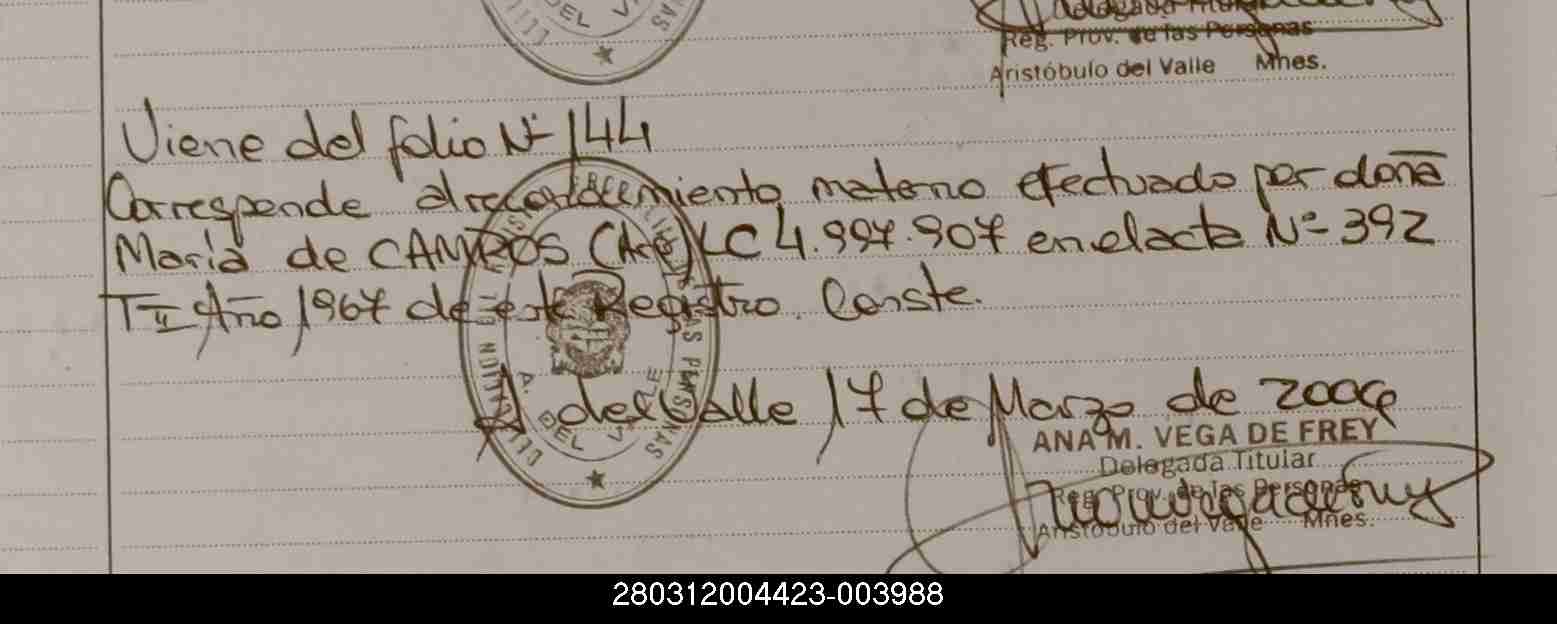 DEL V
NAS
Delegada Titular
Reg. Prov. de las Personas
Aristóbulo del Valle Mnes.
Viene del folio Nº 144
Corresponde al reconocimiento materno efectuado por doña
María de CAMPOS LC 4.997.907 en el acta Nº 392
T II Año 1967 de este Registro. Conste.
A. del Valle 17 de Marzo de 2004
A. DEL VALLE
ANA M. VEGA DE FREY
Delegada Titular
Reg. Prov. de las Personas
Aristóbulo del Valle Mnes.
280312004423-003988